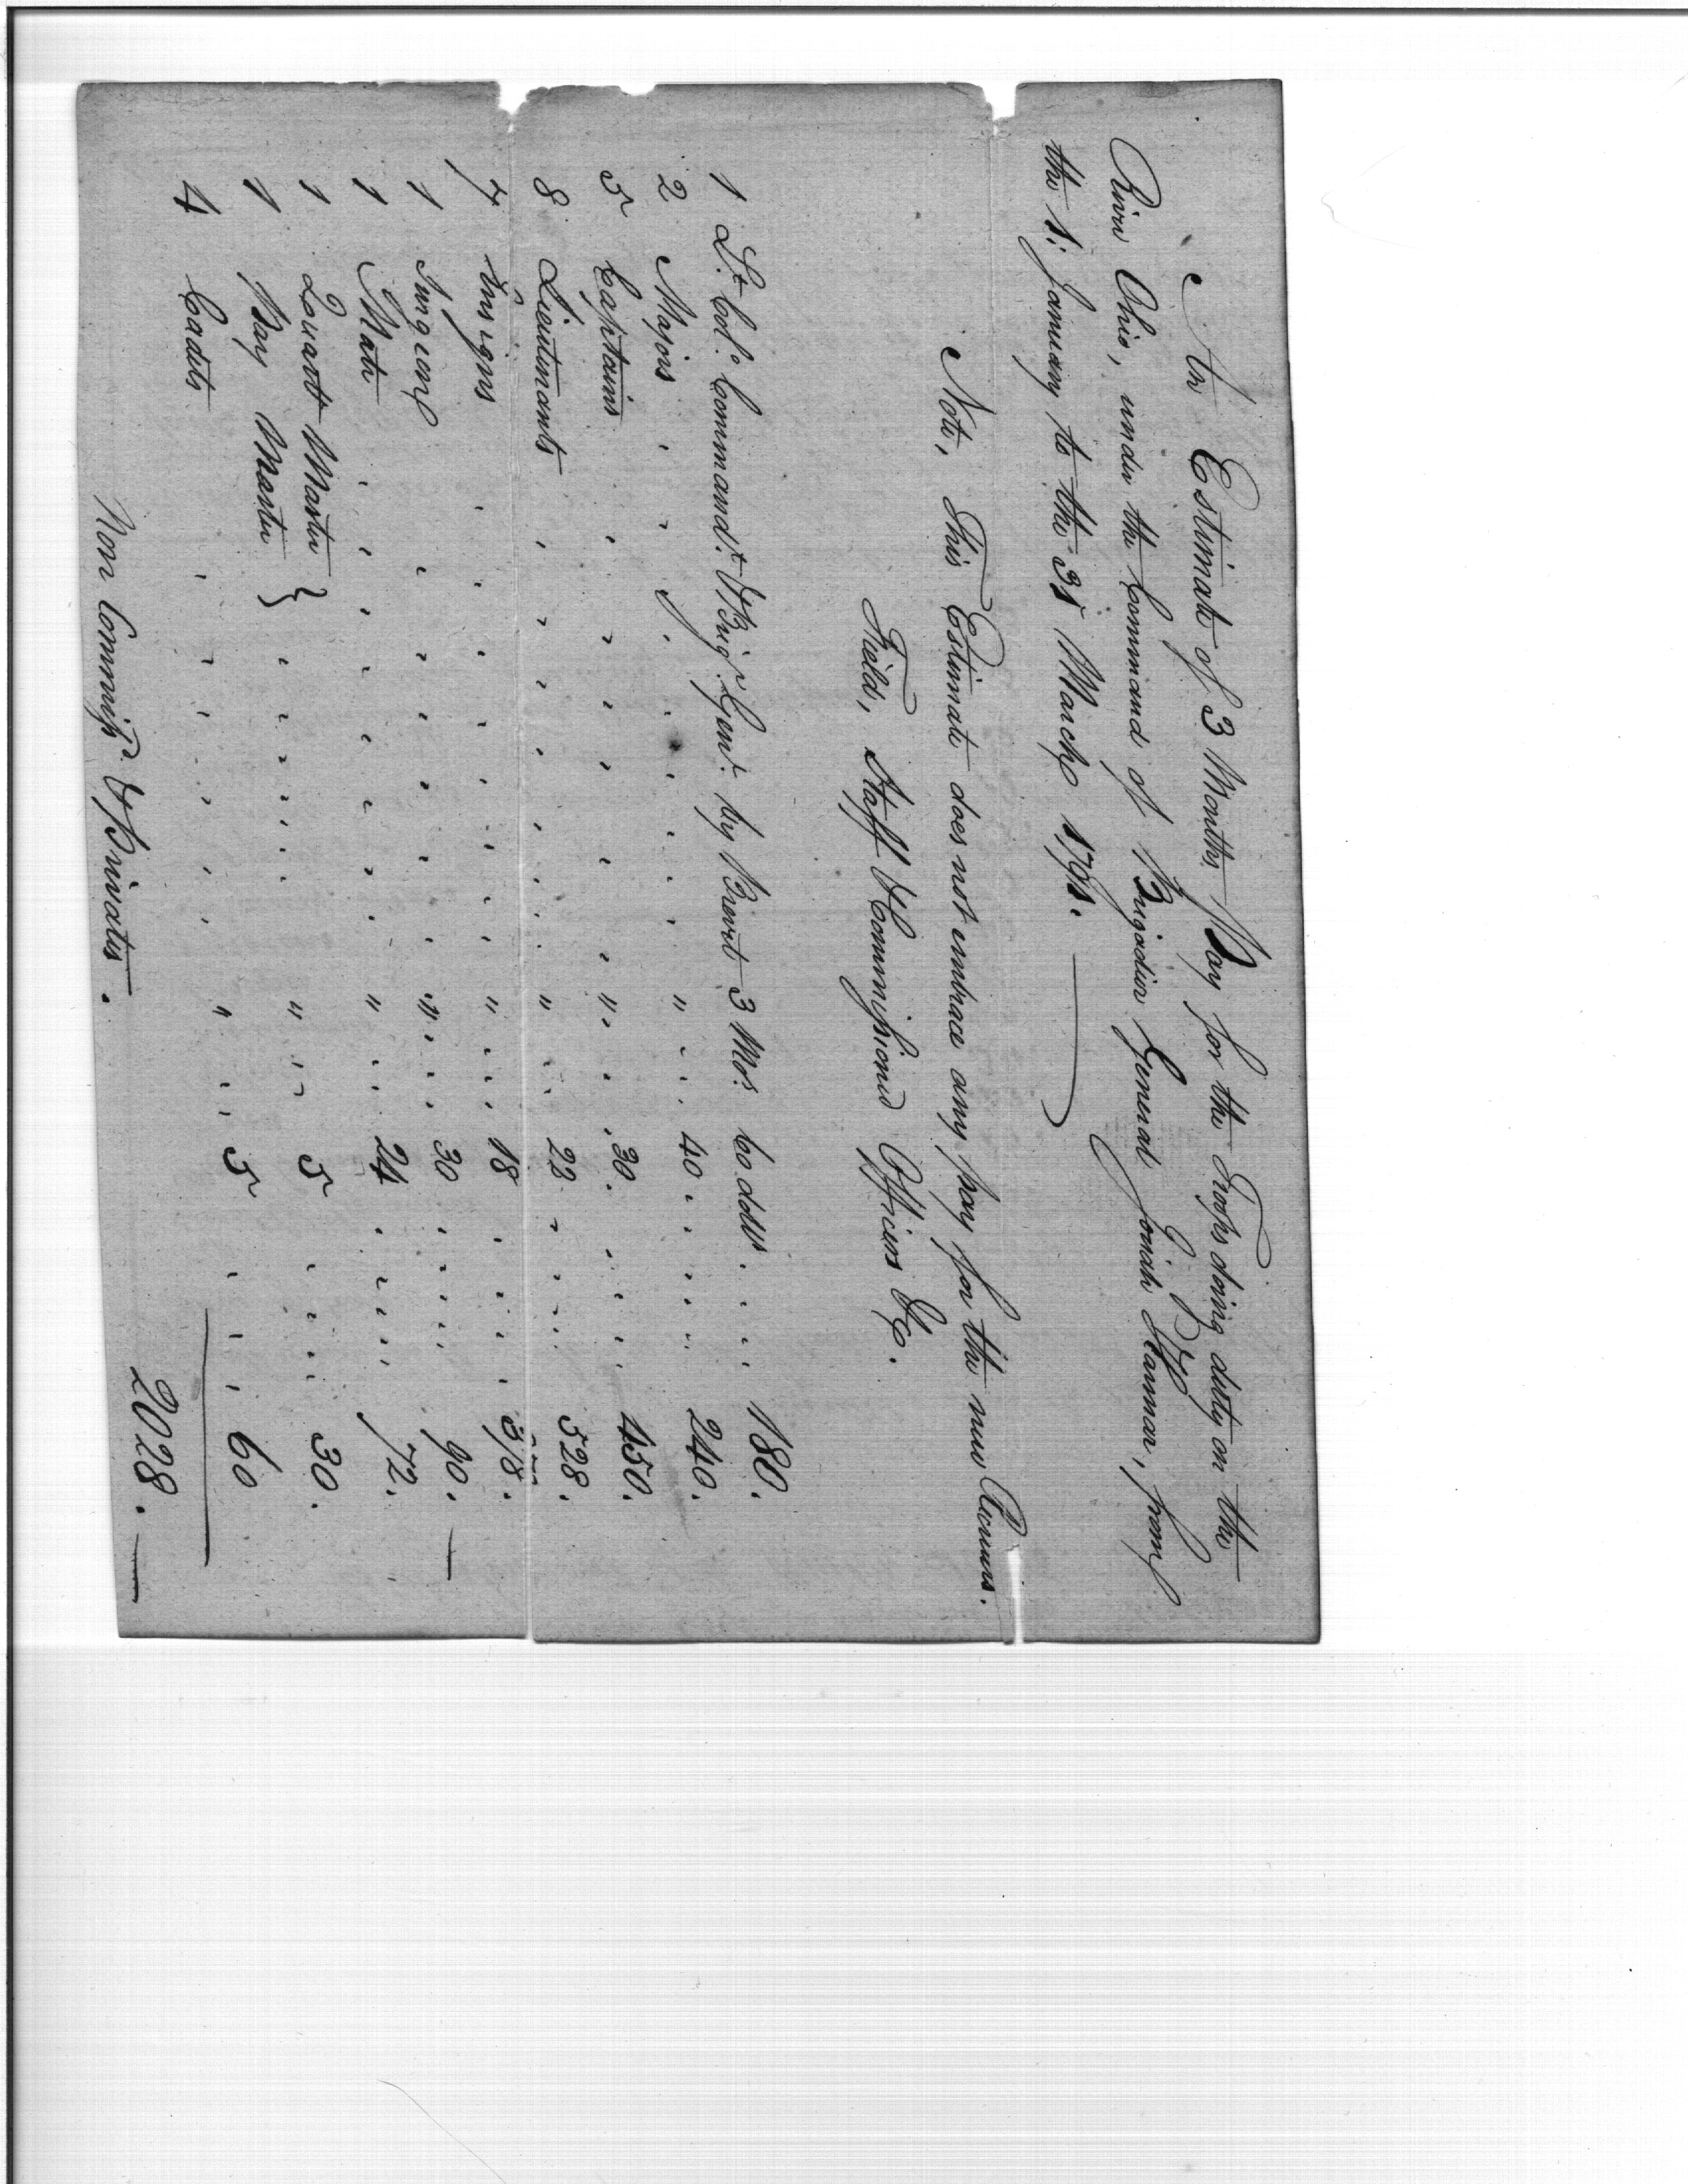 An Estimate of 3 Months Pay for the Troops doing duty on the
River Ohio, under the Command of Brigadier General Josiah Harmar, from
the 1st January to the 31 March 1791.
Note, This Estimate does not embrace any pay for the new
Field, Staff & Commissioned Officers &c.
1 Lt. Colo. Commandt. & Brigr. Genl. by Brevet 3 Mos. 60 dollrs . . . 180.
2 Majors " 40 . . . 240.
5 Captains " 30. . . . 450.
8 Lieutenants " 22 . . . 528.
7 Ensigns " 18 . . . 378.
1 Surgeon " 30 . . . 90.
1 Mate " 24 . . . 72.
1 Quartr Master }
1 Pay Master } " 5 . . . 30.
4 Cadets " 5 . . . 60
2028.
Non Commissd. & Privates.